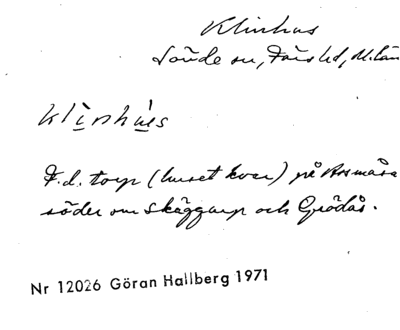 Klinhus
Sövde sn, Färs hd, M.län
klīnhụ̀s
F.d. torp (huset kvar) på Assmåsa
söder om Skäggarp och Grödås.
Nr 12026 Göran Hallberg 1971